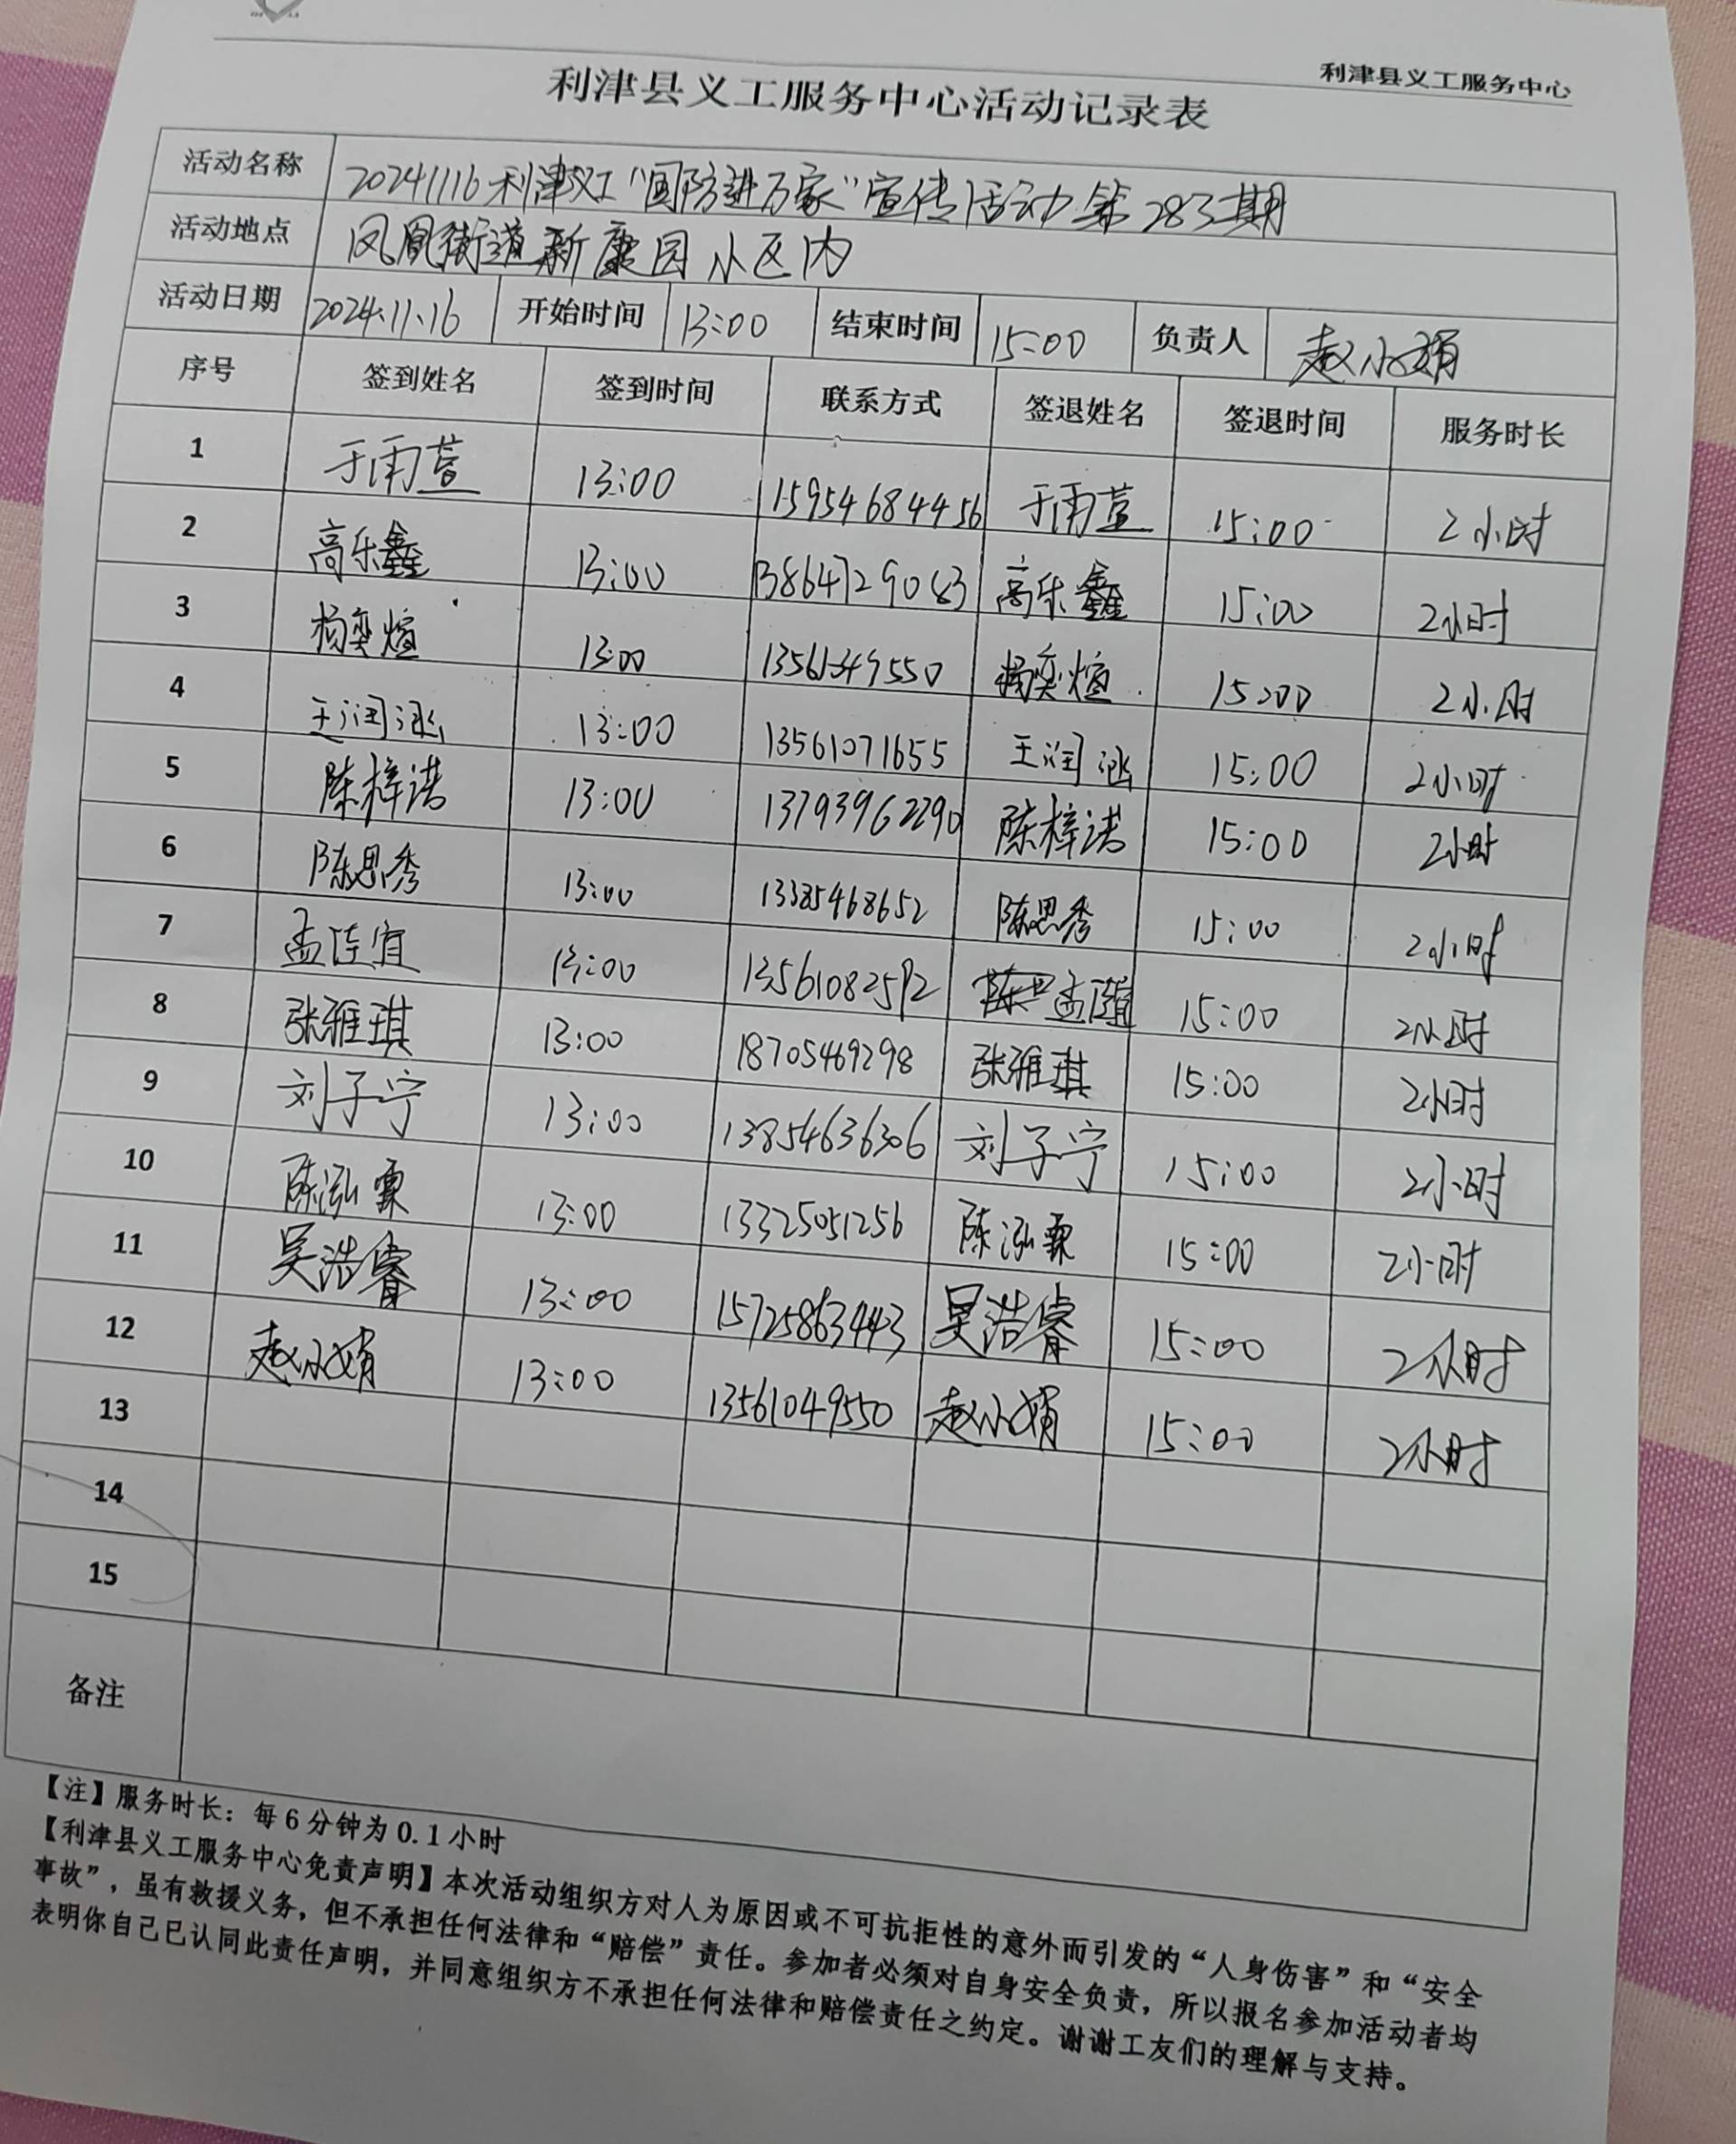 利津县义工服务中心
利津县义工服务中心活动记录表
活动名称 20241116利津义工“国防进万家”宣传活动第283期
活动地点 凤凰街道新康园小区内
活动日期 2024.11.16 开始时间 13:00 结束时间 15:00 负责人 赵小娟
序号 签到姓名 签到时间 联系方式 签退姓名 签退时间 服务时长
1 于雨萱 13:00 15954684456 于雨萱 15:00 2小时
2 高乐鑫 13:00 13864729083 高乐鑫 15:00 2小时
3 杨奕煊 13:00 杨奕煊 15:00 2小时
4 王润涵 13:00 13561071655 王润涵 15:00 2小时
5 陈梓诺 13:00 13793962290 陈梓诺 15:00 2小时
6 陈思秀 13:00 13385468652 陈思秀 15:00 2小时
7 孟 宜 13:00 13561082592 孟 15:00 2小时
8 张雅琪 13:00 18705469298 张雅琪 15:00 2小时
9 刘子宁 13:00 13854636306 刘子宁 15:00 2小时
10 陈泓霖 13:00 13325051256 陈泓霖 15:00 2小时
11 吴浩睿 13:00 15725863443 吴浩睿 15:00 2小时
12 赵小娟 13:00 13561049550 赵小娟 15:00 2小时
13
14
15
备注
【注】服务时长：每6分钟为0.1小时
【利津县义工服务中心免责声明】本次活动组织方对人为原因或不可抗拒性的意外而引发的“人身伤害”和“安全
事故”，虽有救援义务，但不承担任何法律和“赔偿”责任。参加者必须对自身安全负责，所以报名参加活动者均
表明你自己已认同此责任声明，并同意组织方不承担任何法律和赔偿责任之约定。谢谢工友们的理解与支持。